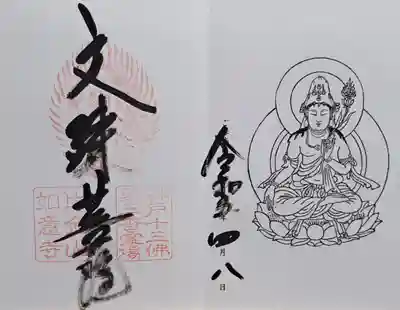 文殊菩薩
戸十三佛
霊場
如意寺
令和
四月八日